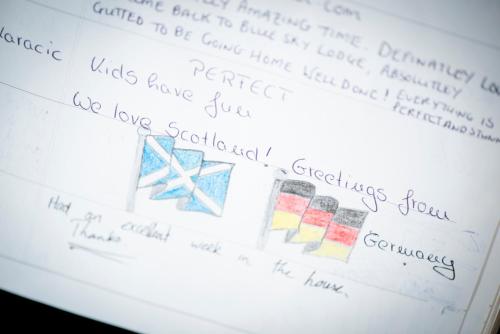 AMAZING TIME. DEFINATLEY
BACK TO BLUE SKY LODGE, ABSOLUTLEY
GUTTED TO BE GOING HOME WELL DONE! EVERYTHING IS
PERFECT AND
PERFECT
Kids have fun
We love Scotland! Greetings from
Germany
Had an excellent week in the house.
Thanks